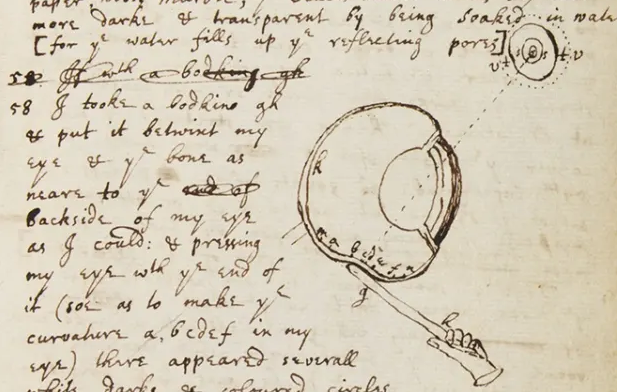 more darke & transparent by being soaked in wate
[for yᵉ water fills up yᵉ reflecting pores]
58 If wth a bodking gh
58 I tooke a bodkine gh
& put it betwixt my
eye & yᵉ bone as
neare to yᵉ end of
backside of my eye
as I could: & pressing
my eye wth yᵉ end of
it (soe as to make yᵉ
curvature a, bcdef in my
eye) there appeared severall
white darke & coloured circles